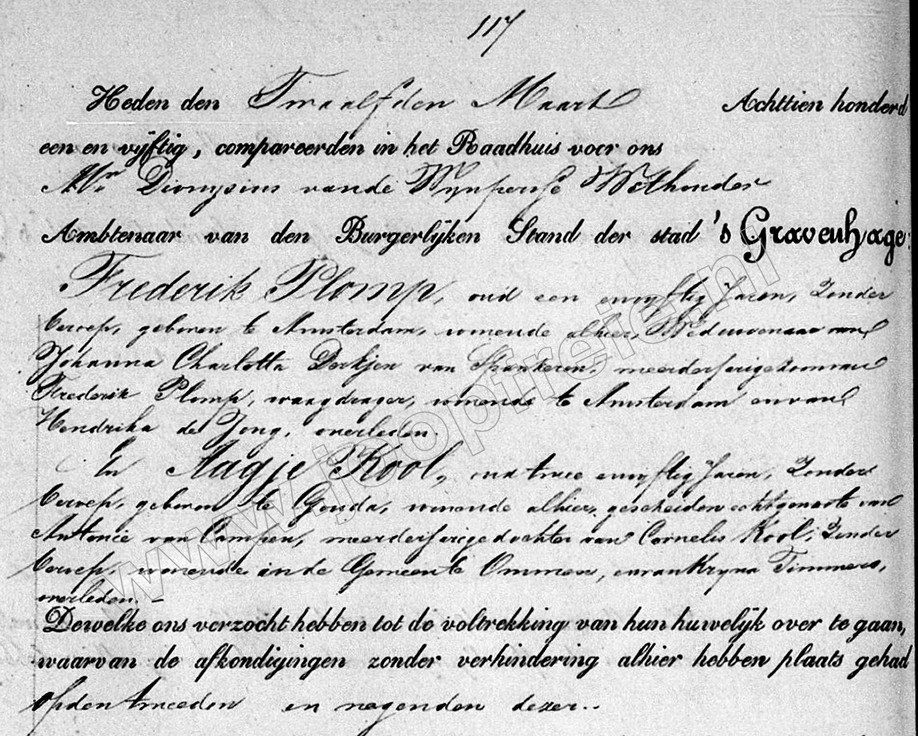 117
Heden den Twaalfden Maart Achttien honderd
een en vijftig, compareerden in het Raadhuis voor ons
Mr. Dionysius van de Wijnpersse Wethouder
Ambtenaar van den Burgerlijken Stand der stad 's Gravenhage:
Frederik Plomp, oud een en vijftig Jaren, Zonder
beroep, geboren te Amsterdam, wonende alhier, Weduwenaar van
Johanna Charlotta Derkjen van Spankeren, meerderjarige zoon van
Frederik Plomp, waagdrager, wonende te Amsterdam en van
Hendrika de Jong, overleden,
En Aagje Kool, oud twee en vijftig Jaren, Zonder
beroep, geboren te Gouda, wonende alhier, gescheiden echtgenoote van
Antonie van Campen, meerderjarige dochter van Cornelis Kool, Zonder
beroep, wonende in de Gemeente Ommen, en van Kryna Timmers,
overleden. –
Dewelke ons verzocht hebben tot de voltrekking van hun huwelijk over te gaan,
waarvan de afkondigingen zonder verhindering alhier hebben plaats gehad
op den tweeden en negenden dezer..